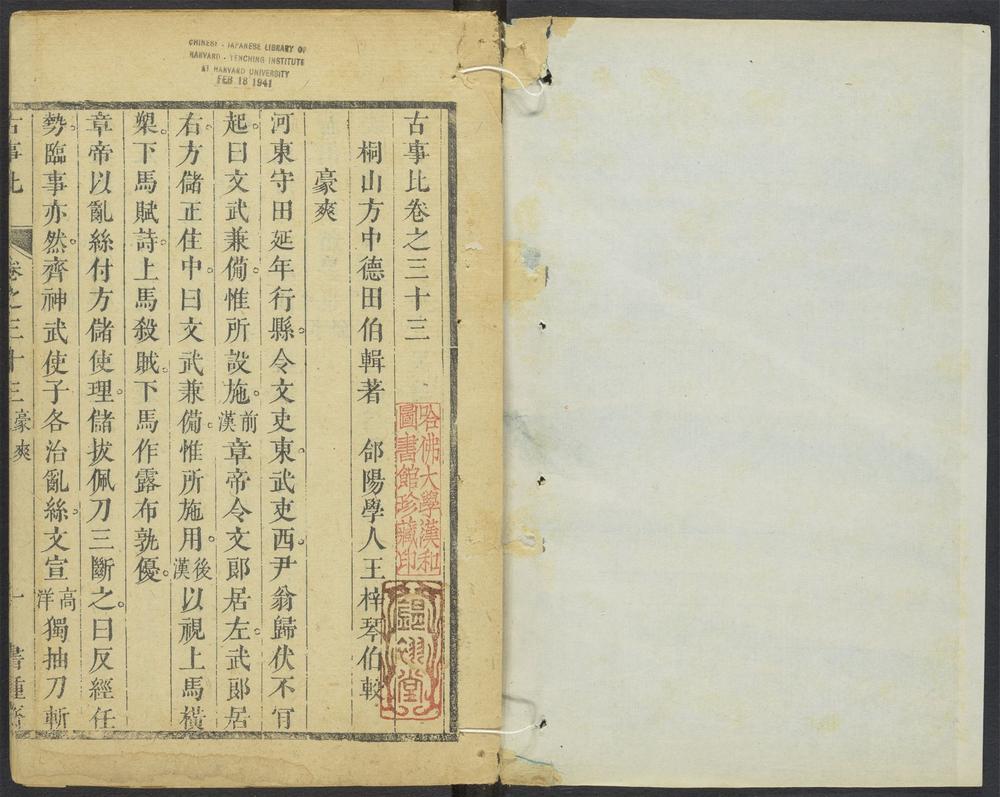 CHINESE - JAPANESE LIBRARY OF
HARVARD - YENCHING INSTITUTE
AT HARVARD UNIVERSITY
FEB 18 1941
古事比卷之三十三
哈佛大學漢和
圖書館珍藏印
桐山方中德田伯輯著 郃陽學人王梓琴伯較
豪爽
河東守田延年行縣。令文吏東。武吏西。尹翁歸伏不肯
起。曰文武兼備。惟所設施。前漢章帝令文郎居左。武郎居
右。方儲正住中。曰文武兼備。惟所施用。後漢以視上馬橫
槊。下馬賦詩。上馬殺賊。下馬作露布孰優。
章帝以亂絲付方儲使理。儲拔佩刀三斷之。曰反經任
勢。臨事亦然。齊神武使子各治亂絲。文宣高洋獨抽刀斬
古事比 卷之三十三 豪爽 一